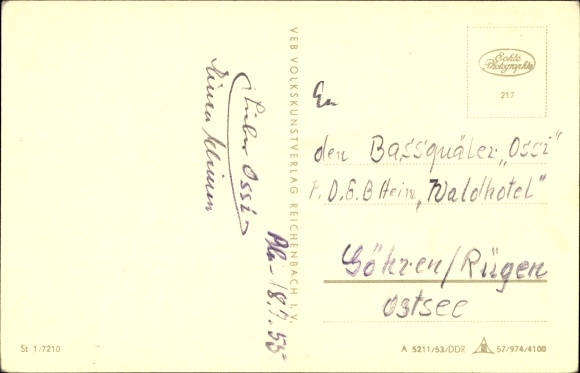 VEB VOLKSKUNSTVERLAG REICHENBACH I. V.
Echte
Photographie
217
An
den Bassquäler „Ossi"
F.D.G.B Heim „Waldhotel"
Göhren/Rügen
Ostsee
Lieber Ossi
18.7.55
St 1/7210
A 5211/53/DDR 57/974/4100